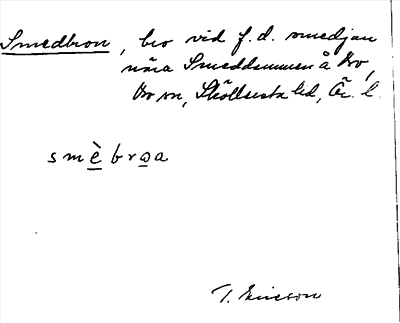 Smedbron, bro vid f.d. smedjan
nära Smeddammen å Bro,
Bro sn, Sköllersta hd, Är. l.
smèbrωa
T. Ericson